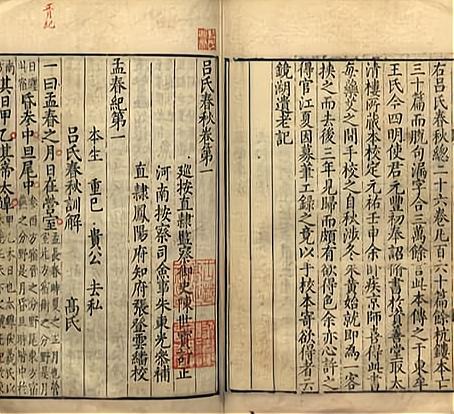 右呂氏春秋總二十六卷凡百六十篇餘杭鏤本亡
三十篇而脫句漏字合三萬餘言此本傳之于東牟
王氏今四明使君元豐初奉詔修書於資善堂取太
清樓所藏本校定元祐壬申余卧疾京師喜得此書
每藥艾之間手校之自秋涉冬朱黃始就即為一客
挾之而去後三年見歸而頗有欲得色余亦心許之
得官江夏因募筆工錄之竟以手校本寄欲得者云
鏡湖遺老記
呂氏春秋卷第一
巡按直隸監察御史陳世寶訂正
河南按察司僉事朱東光參補
直隸鳳陽府知府張登雲繙校
孟春紀第一
本生 重己 貴公 去私
呂氏春秋訓解 高氏
正月紀
一曰孟春之月日在營室
昏參中旦尾中
其日甲乙其帝太皞